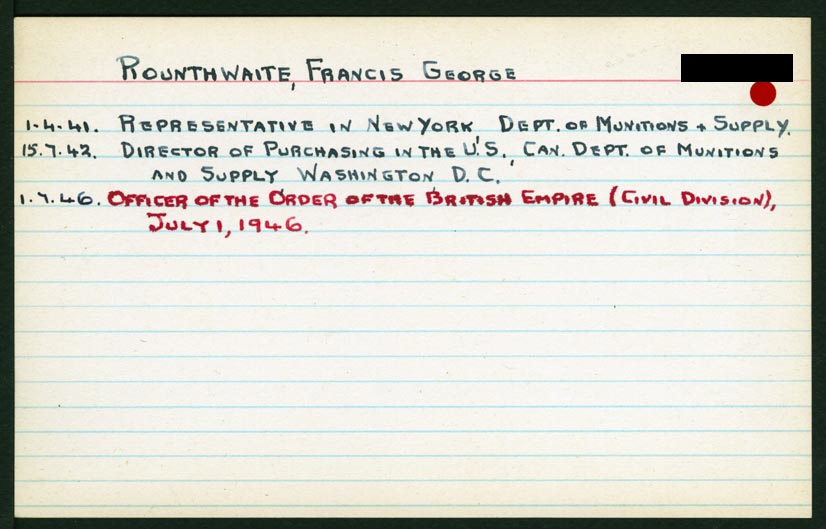 ROUNTHWAITE, FRANCIS GEORGE
1.4.41. REPRESENTATIVE IN NEW YORK DEPT. OF MUNITIONS + SUPPLY.
15.7.42. DIRECTOR OF PURCHASING IN THE U.S., CAN. DEPT. OF MUNITIONS
AND SUPPLY WASHINGTON D.C.
1.7.46. OFFICER OF THE ORDER OF THE BRITISH EMPIRE (CIVIL DIVISION),
JULY 1, 1946.